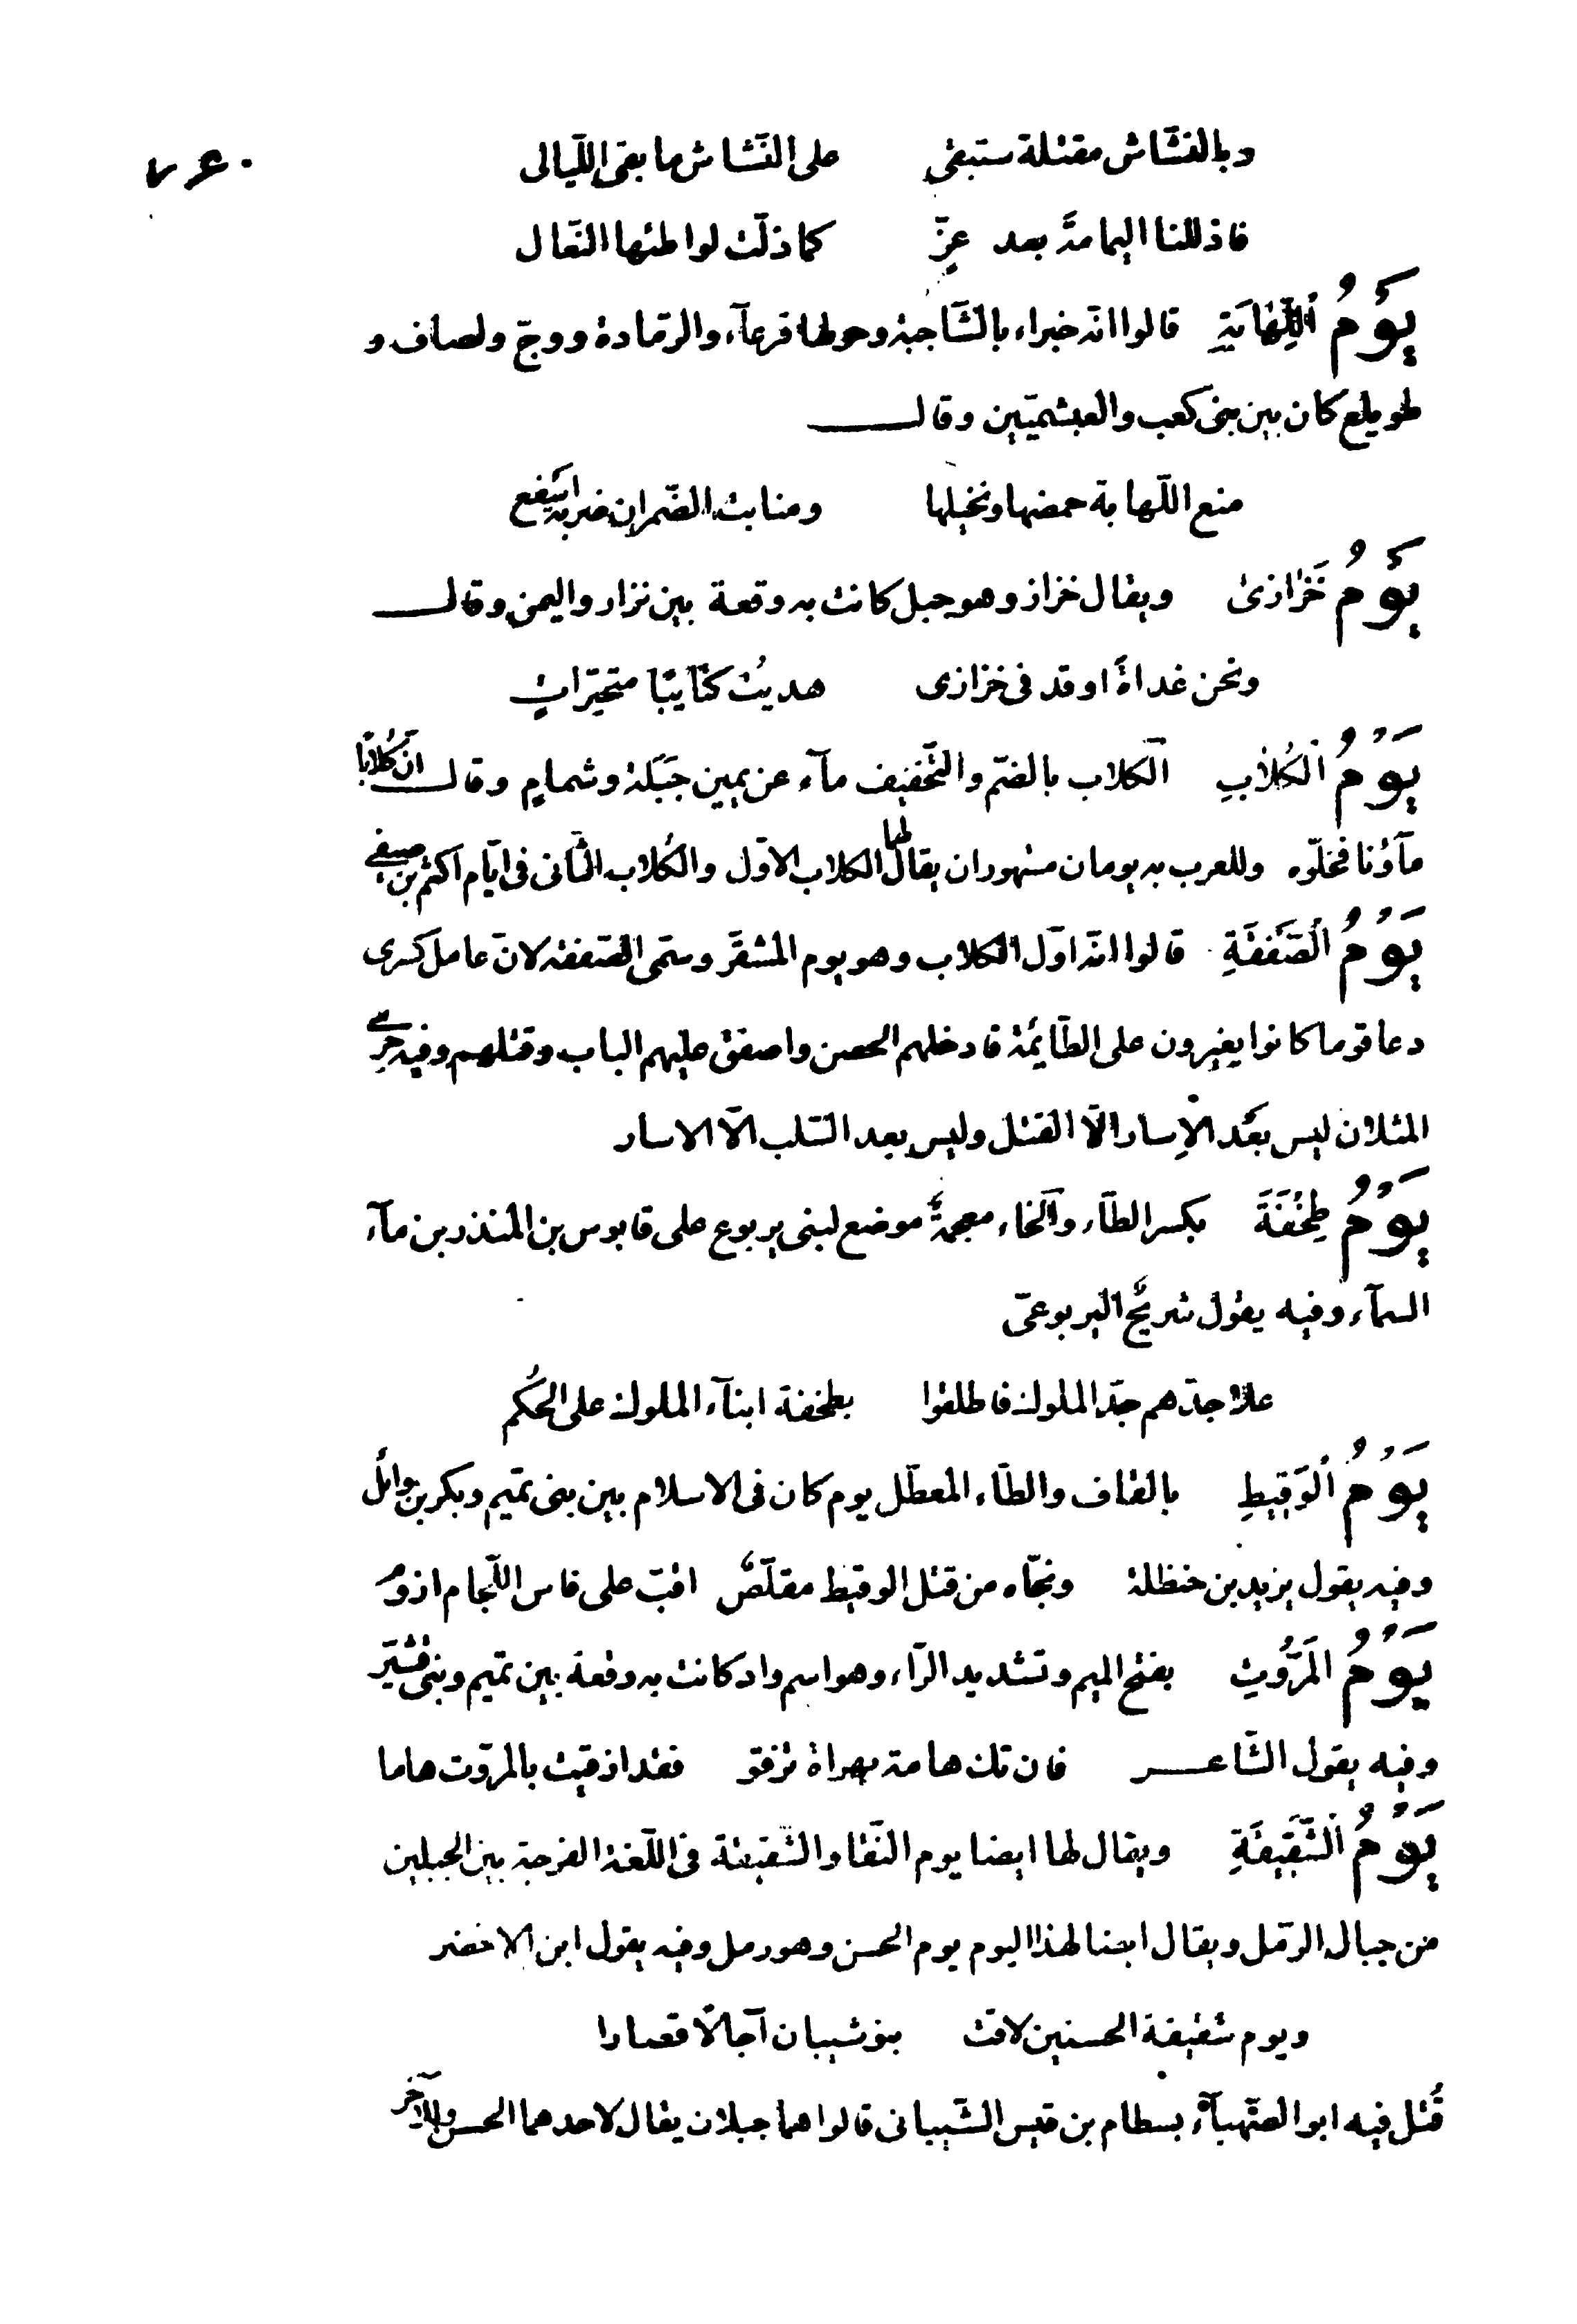 ۷۶۰
وبالنشّاش مقتلة ستبقى على النشّاش ما بقى اللّيالى
فاذللنا اليمامة بعد عزّ كما ذلّت لواطئها النّعال
يَوْمُ اللِّهَابَةِ قالوا انّه خبراء بالشّاجنة وحولها قرعآء والرّمادة ووجّ ولصاف و
طويلع كان بين بنى كعب والعبشميّين وقال
منع اللّهابة حمضها ونخيلها ومنابت الضّمران ضربة اسفع
يَوْمُ خَزَازىٰ ويقال خزاز وهو جبل كانت به وقعة بين نزار واليمن وقال
ونحن غداةً اوقد فى خزازى هديتُ كتآيبًا متحيّراتٍ
يَوْمُ الْكُلَابِ الكلاب بالضّم والتّخفيف مآء عن يمين جَبَلة وشمامٍ وقال انّ كُلابًا
مآؤنا فخلّوه وللعرب به يومان مشهوران يقال لهما الكلاب الاوّل والكُلاب الثّانى فى ايّام اكثم بن صيفى
يَوْمُ الصَّفْقَةِ قالوا انّه اوّل الكلاب وهو يوم المشقّر وسمّى الصّفقة لانّ عامل كسرى
دعا قوما كانوا يغيرون على الطّايمة فادخلهم الحصن واصفق عليهم الباب وقتلهم وفيه جرى
المثلان ليس بَعْد الاِسار الّا القتل وليس بعد السّلب الّا الاسار
يَوْمُ طِخْفَةَ بكسر الطّاء والخاء معجمةٌ موضع لبنى يربوع على قابوس بن المنذر بن مآء
السمآء وفيه يقول شريحٌ اليربوعىّ
علا جدّهم جدّ الملوك فاطلقوا بطخفة ابنآء الملوك على الحُكم
يَوْمُ الْوَقِيطِ بالقاف والطّاء المعطّل يوم كان فى الاسلام بين بنى تميم وبكر بن وائل
وفيه يقول يزيد بن حنظلة ونجّاه من قتل الوقيط مقلّصٌ اقبّ على فاس اللّجام ازومُ
يَوْمُ المَرُّوتِ بفتح الميم وتشديد الرّاء وهو اسم واد كانت به وقعة بين تميم وبنى قُشَيْر
وفيه يقول الشّاعر فان تك هامة بهراة تزقو فقد ازقيت بالمرّوت هاما
يَوْمُ الشَّقِيقَةِ ويقال لها ايضا يوم النّقا والشّقيقة فى اللّغة الفرجة بين الجبلين
من جبال الرّمل ويقال ايضا لهذا اليوم يوم الحسن وهو رمل وفيه يقول ابن الاخضر
ويوم شقيقة الحسنين لاقت بنو شيبان آجالًا قصارا
قُتل فيه ابو الصّهبآء بسطام بن قيس الشّيبانى قالوا هما جبلان يقال لاحدهما الحسن وللآخر